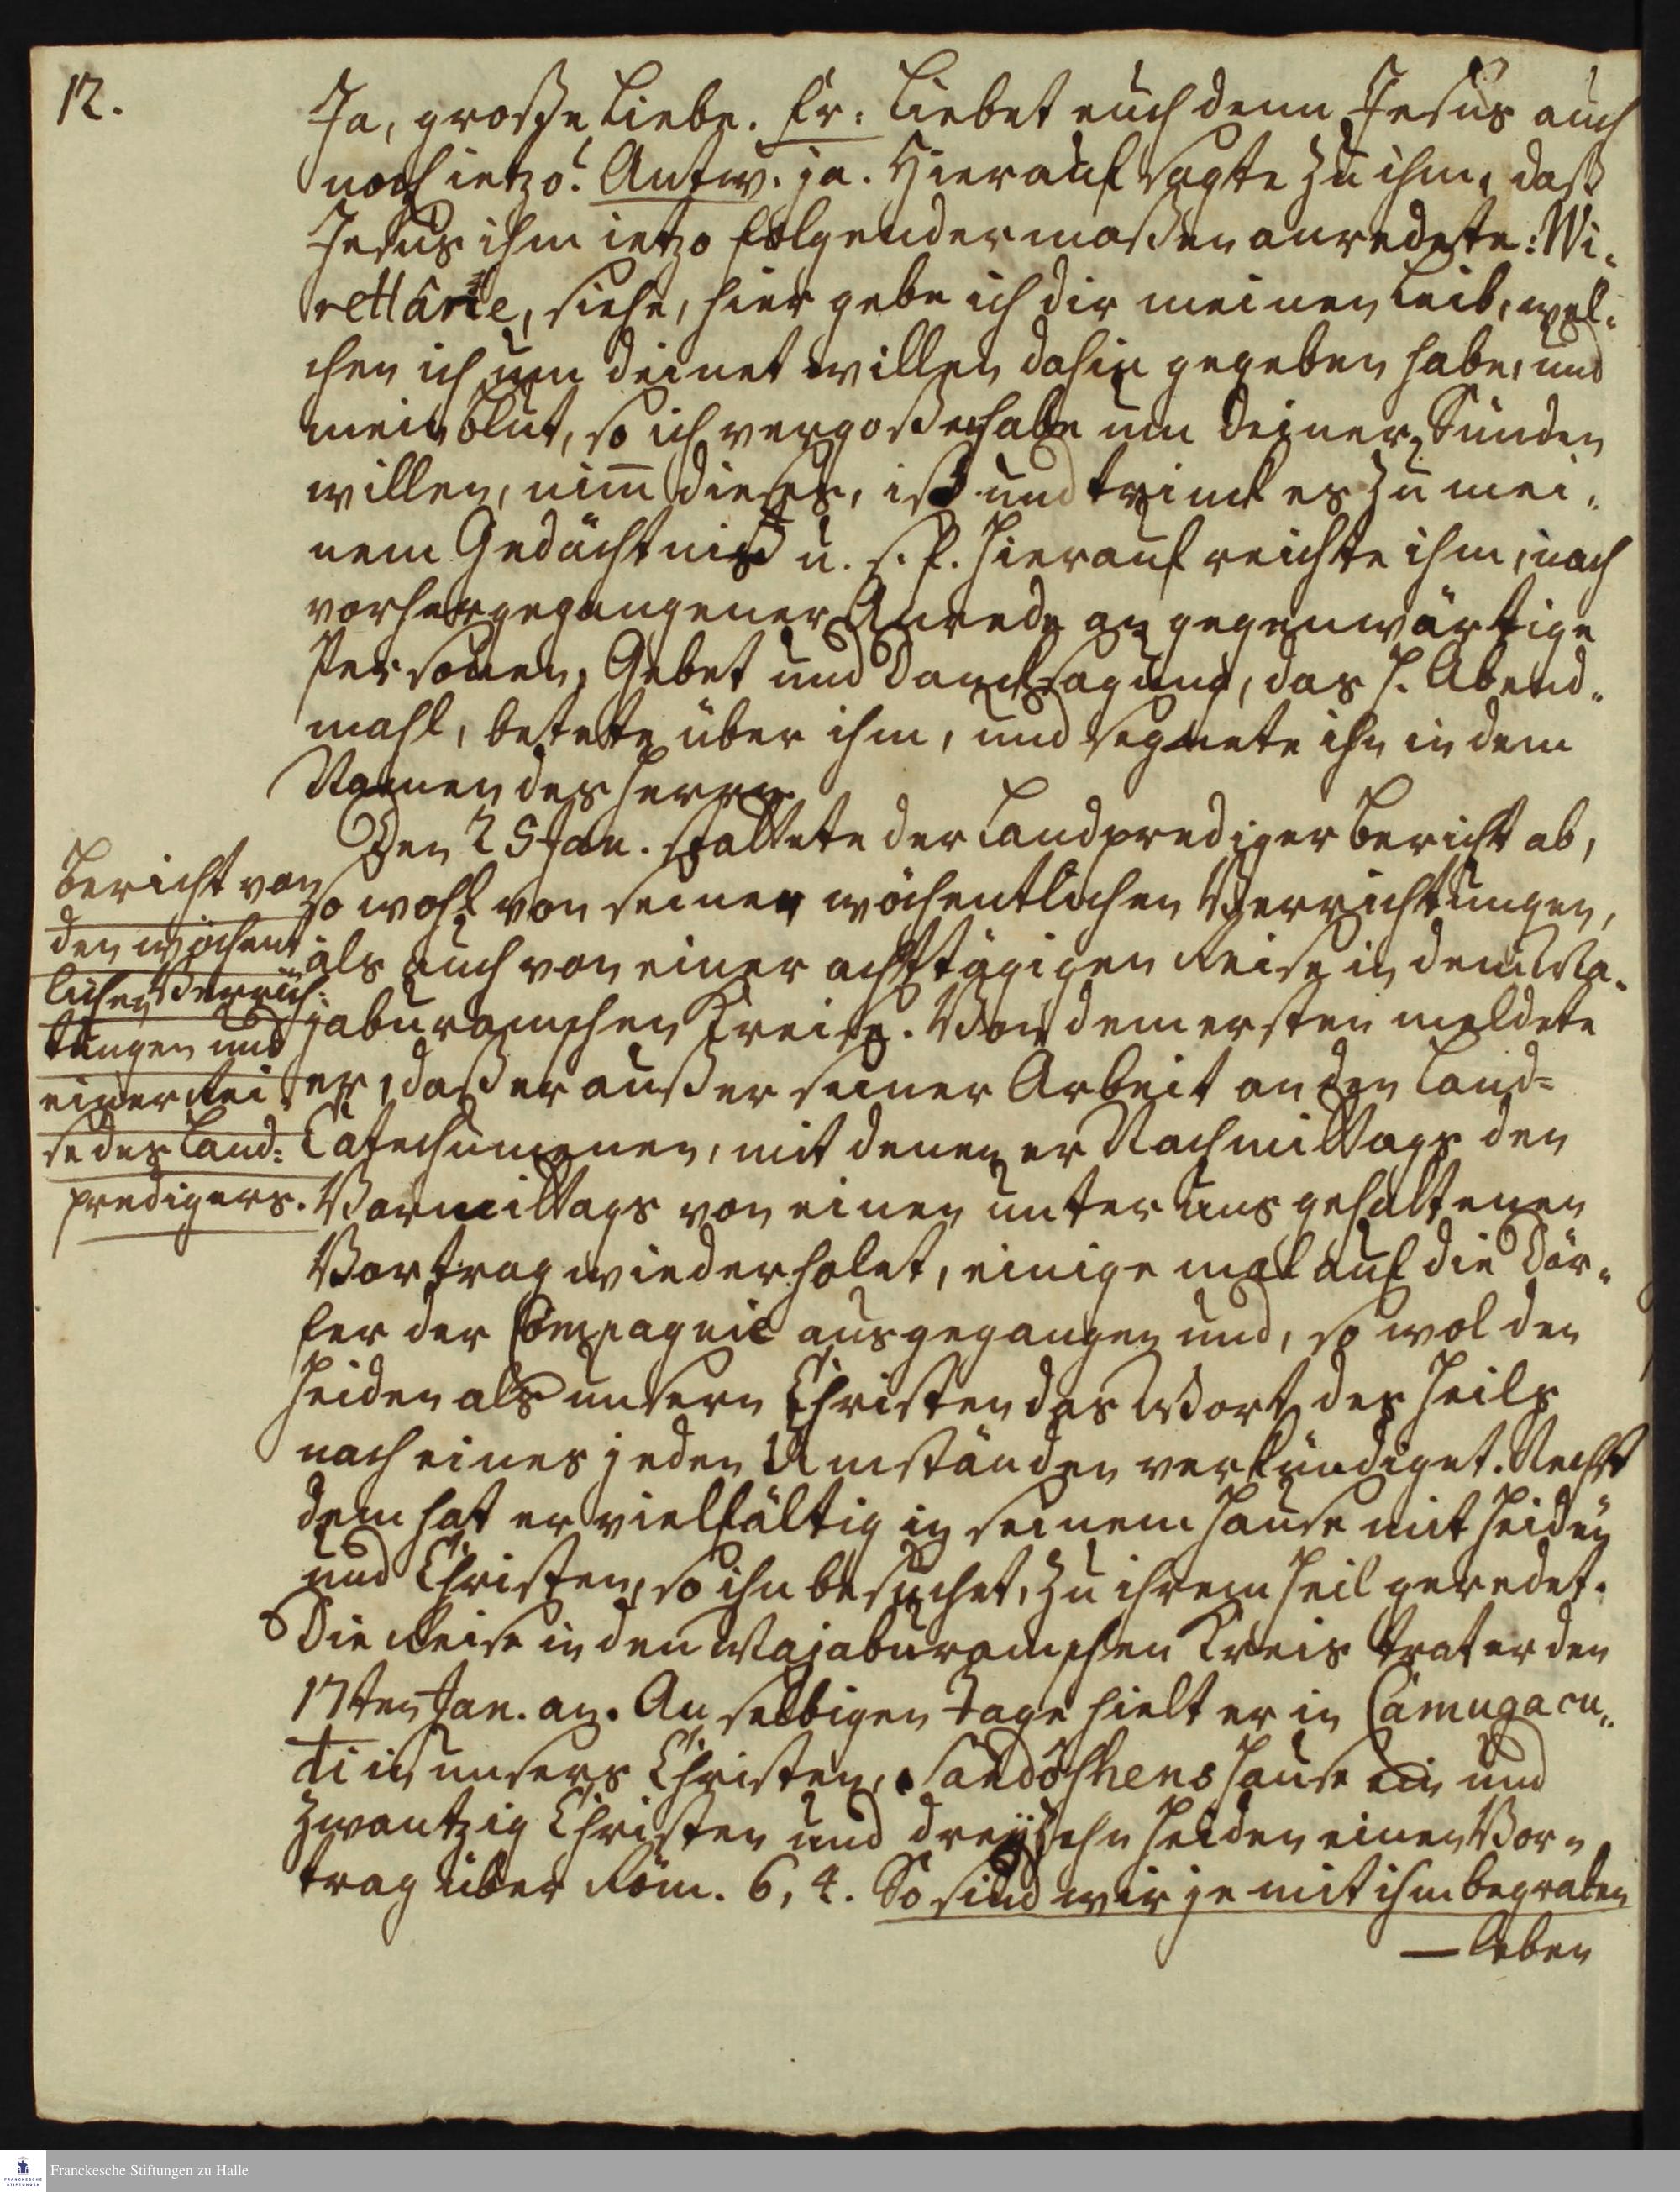 12.
Ja, große Liebe. Er: Liebet euch denn Jesus auch
noch ietzo? Antw. ja. Hierauf sagte zu ihm, daß
Jesus ihm ietzo folgendermaßen anredete: Wi-
rettârie, siehe, hier gebe ich dir meinen Leib, wel-
chen ich um deinet willen dahin gegeben habe, und
mein Blut, so ich vergoßen habe um deiner Sünden
willen, nim̅ dieses, iß und trinck es zu mei-
nem Gedächtniß u. s. f. Hierauf reichte ihm, nach
vorhergegangener Anrede an gegenwärtige
Personen, Gebet und Dancksagung, das H. Abend-
mahl, betete über ihm, und segnete ihn in dem
Namen des Herrn.
Den 25 Jan. stattete der Landprediger Bericht ab,
so wohl von seinen wöchentlichen Verrichtungen,
als auch von einer achttägigen Reise in dem Ma-
jaburamschen Kreise. Von dem ersten meldete
er, daß er außer seiner Arbeit an den Land-
Catechumenen, mit denen er Nachmittags den
Vormittags von einen unter uns gehaltenen
Vortrag wiederholet, einige mal auf die Dör-
fer der Compagnie ausgegangen und, so wol den
Heiden als unsern Christen das Wort des Heils
nach eines jeden Umständen verkündiget. Nechst
dem hat er vielfältig in seinem Hause mit Heiden
und Christen, so ihn besuchet, zu ihrem Heil geredet.
Die Reise in den Majaburamschen Kreis trat er den
17ten Jan. an. An selbigen Tage hielt er in Camugacu-
ti in unsers Christen, Sandôshens Hause ein und
zwantzig Christen und dreyzehn Heiden einen Vor-
trag über Röm. 6, 4. So sind wir je mit ihm begraben
— leben
Bericht von
den wöchent
lichen Verrich-
tungen und
einer Rei-
se des Land-
predigers.
Franckesche Stiftungen zu Halle
FRANCKESCHE
STIFTUNGEN